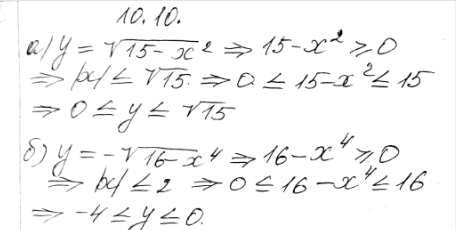 10.10.
а) y = √15 - x² ⇒ 15 - x² ≥ 0
⇒ |x| ≤ √15. ⇒ 0 ≤ 15 - x² ≤ 15
⇒ 0 ≤ y ≤ √15
б) y = -√16 - x⁴ ⇒ 16 - x⁴ ≥ 0
⇒ |x| ≤ 2 ⇒ 0 ≤ 16 - x⁴ ≤ 16
⇒ -4 ≤ y ≤ 0.